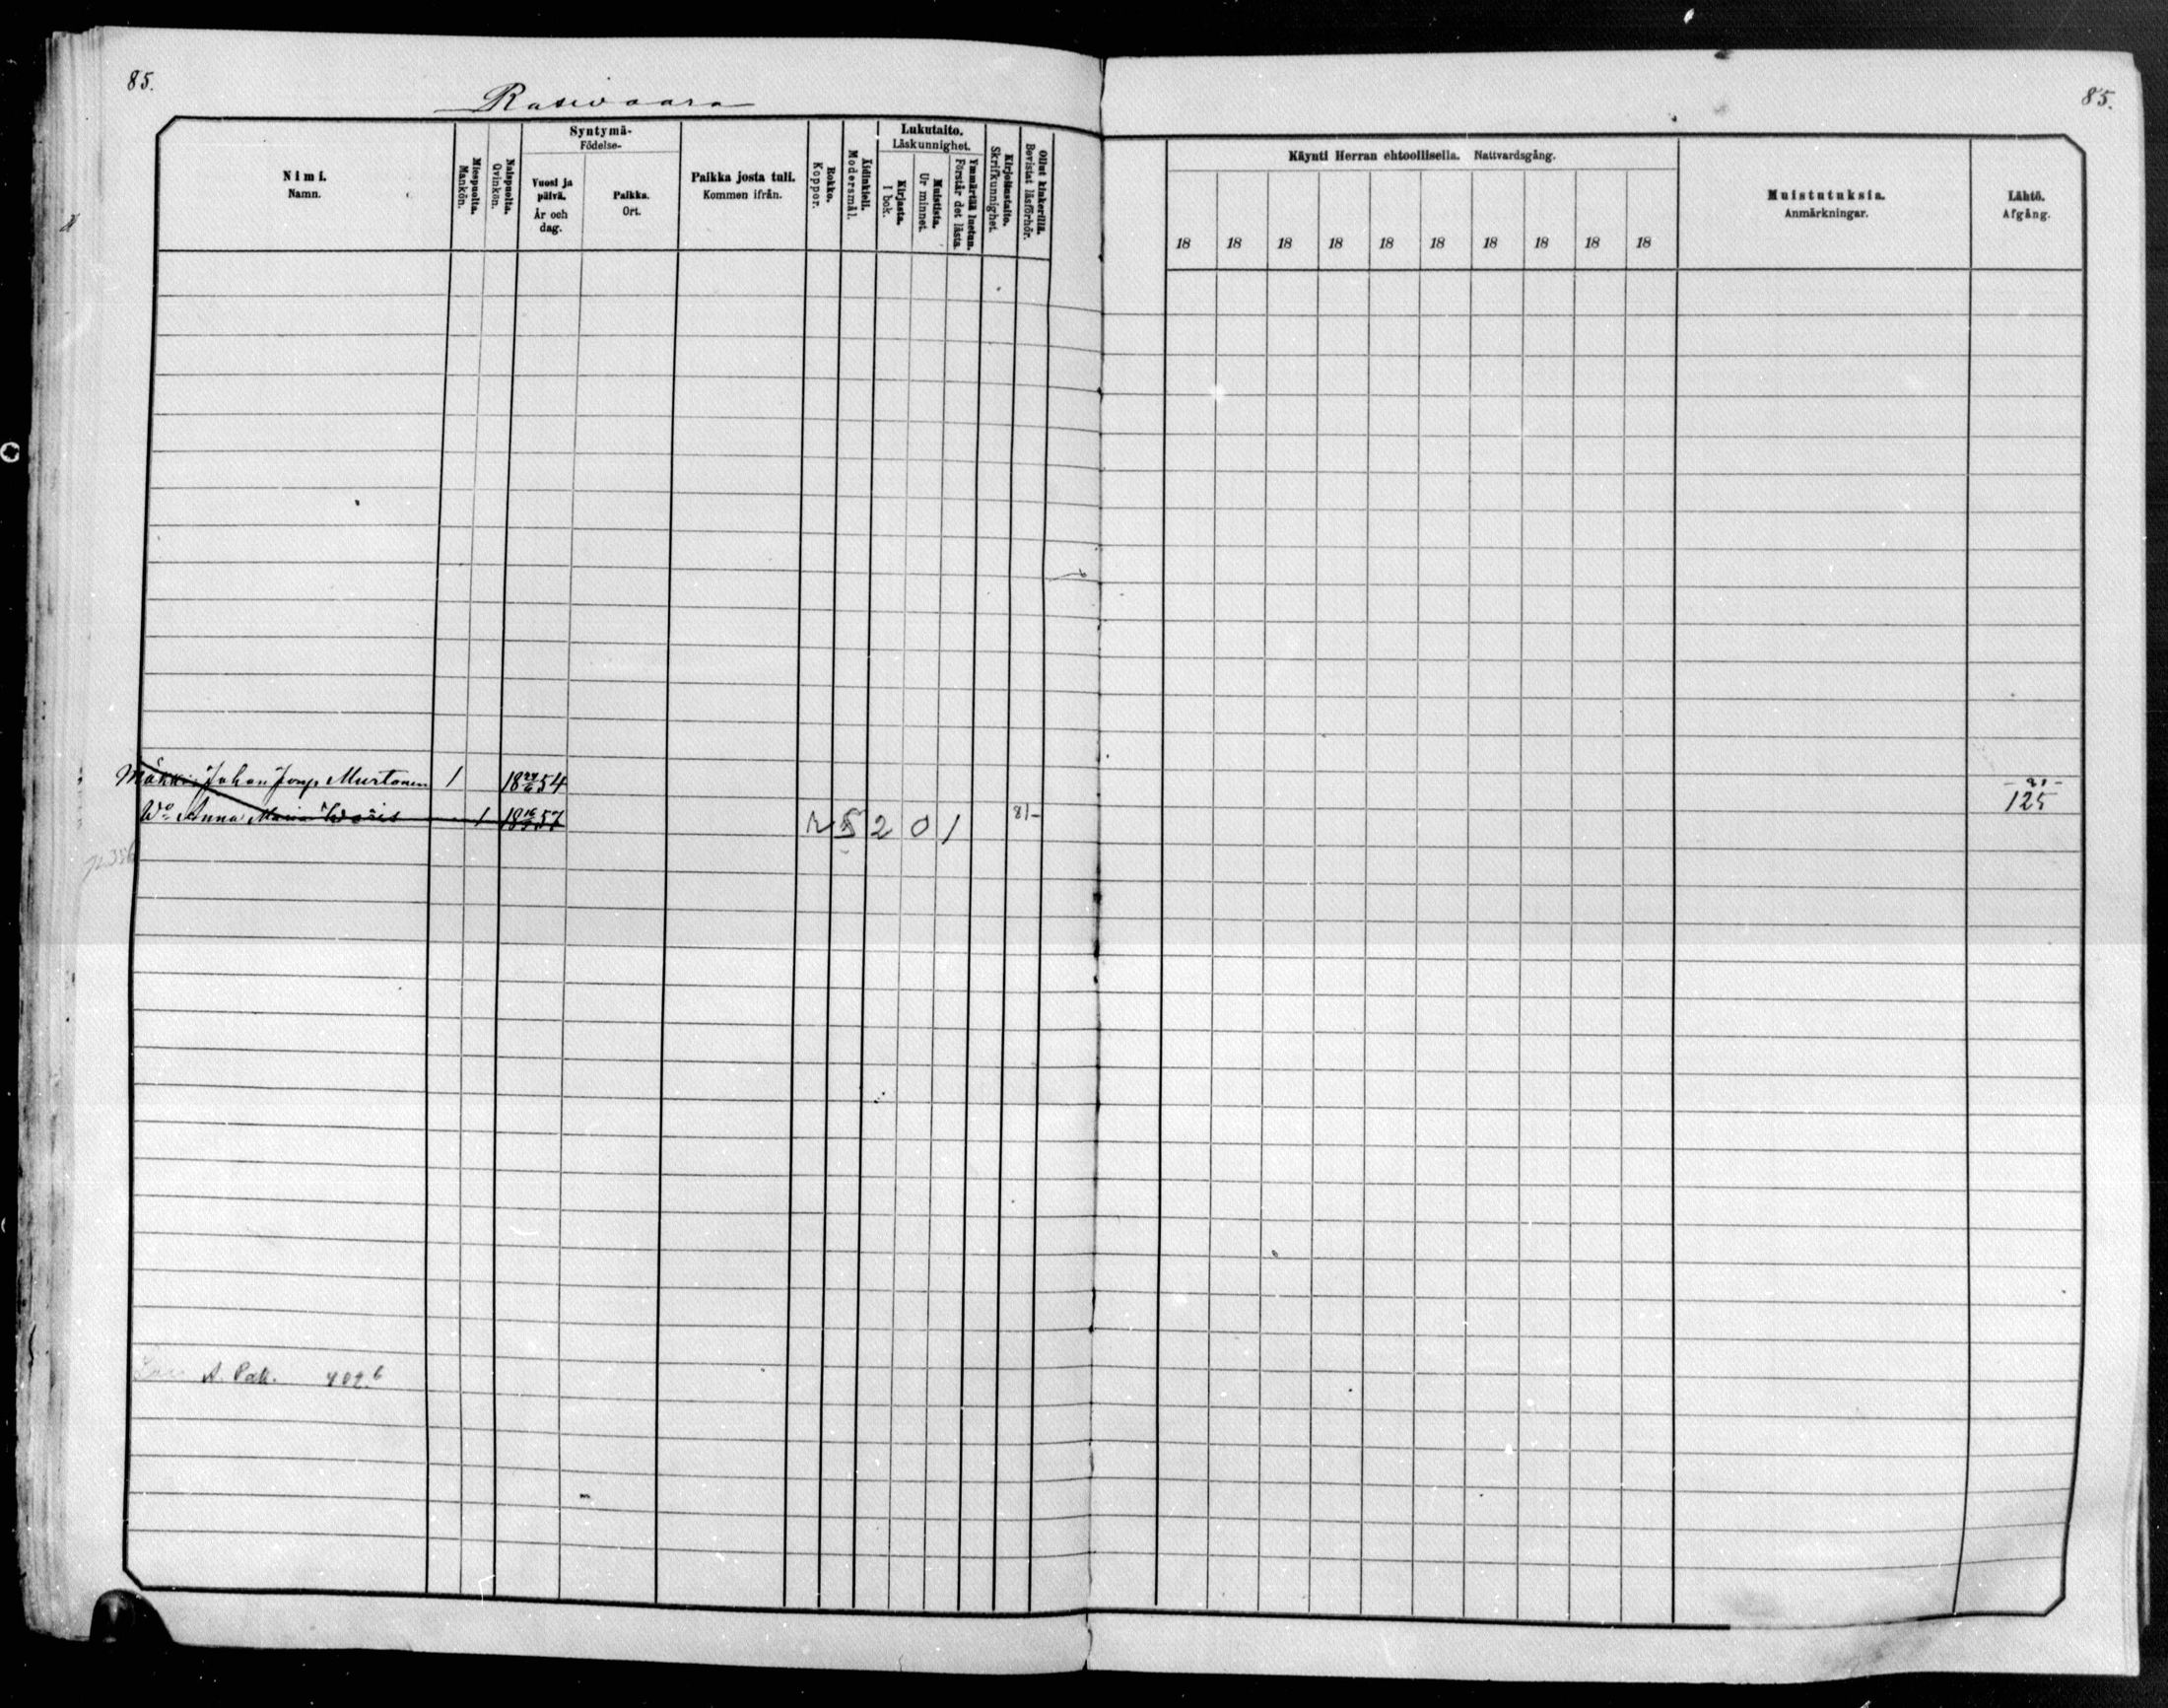 85.
Rasivaara
85.
Nimi.
Namn.
Miespuolia.
Mankön.
Naispuolia.
Qvinkön.
Syntymä-
Födelse-
Vuosi ja päivä.
År och dag.
Paikka.
Ort.
Paikka josta tuli.
Kommen ifrån.
Rokko.
Koppor.
Äidinkieli.
Modersmål.
Lukutaito.
Läskunnighet.
Kirjasta.
I bok.
Muistista.
Ur minnet.
Ymmärtää luetun.
Förstår det lästa.
Kirjoitustaito.
Skrifkunnighet.
Ollut kinkerillä.
Bevistat läsförhör.
Käynti Herran ehtoollisella. Nattvardsgång.
18 18 18 18 18 18 18 18 18 18
Muistutuksia.
Anmärkningar.
Lähtö.
Afgång.
Johan Jonp. Murtonen 1 18 24/6 54
125
Wo Anna Maria 1 18 57 r 5 2 0 1 81-
A. Pak. 402.6